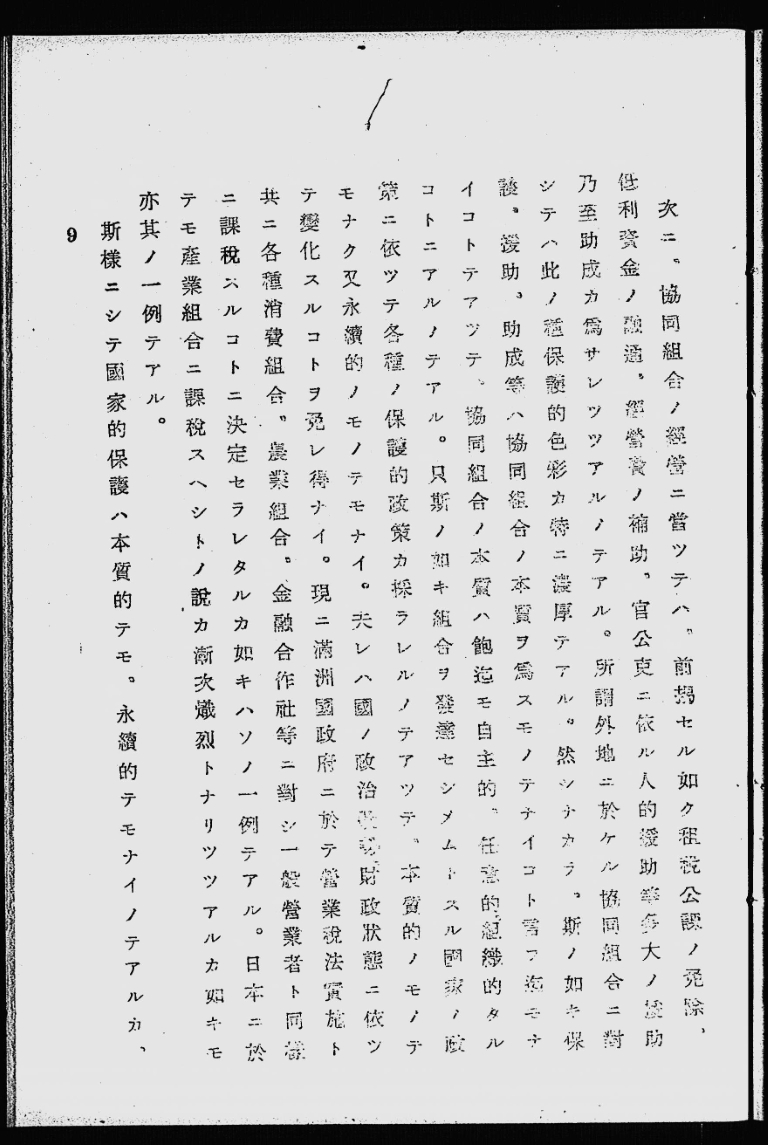 次ニ。協同組合ノ經營ニ當ツテハ。前揭セル如ク租税公課ノ免除、
低利資金ノ融通。經營費ノ補助。官公吏ニ依ル人的援助等多大ノ援助
乃至助成カ爲サレツツアルノテアル。所謂外地ニ於ケル協同組合ニ對
シテハ此ノ種保護的色彩カ特ニ濃厚テアル。然シナカラ。斯ノ如キ保
護。援助。助成等ハ協同組合ノ本質ヲ爲スモノテナイコト言フ迄モナ
イコトテアツテ。協同組合ノ本質ハ飽迄モ自主的。任意的組織的タル
コトニアルノテアル。只斯ノ如キ組合ヲ發達セシメムトスル國家ノ政
策ニ依ツテ各種ノ保護的政策カ採ラレルノテアツテ。本質的ノモノテ
モナク又永續的ノモノテモナイ。夫レハ國ノ政治財政狀態ニ依ツ
テ變化スルコトヲ免レ得ナイ。現ニ滿洲國政府ニ於テ營業税法實施ト
共ニ各種消費組合。農業組合。金融合作社等ニ對シ一般營業者ト同樣
ニ課税スルコトニ決定セラレタルカ如キハソノ一例テアル。日本ニ於
テモ產業組合ニ課税スヘシトノ說カ漸次熾烈トナリツツアルカ如キモ
亦其ノ一例テアル。
斯樣ニシテ國家的保護ハ本質的テモ。永續的テモナイノテアルカ、
9